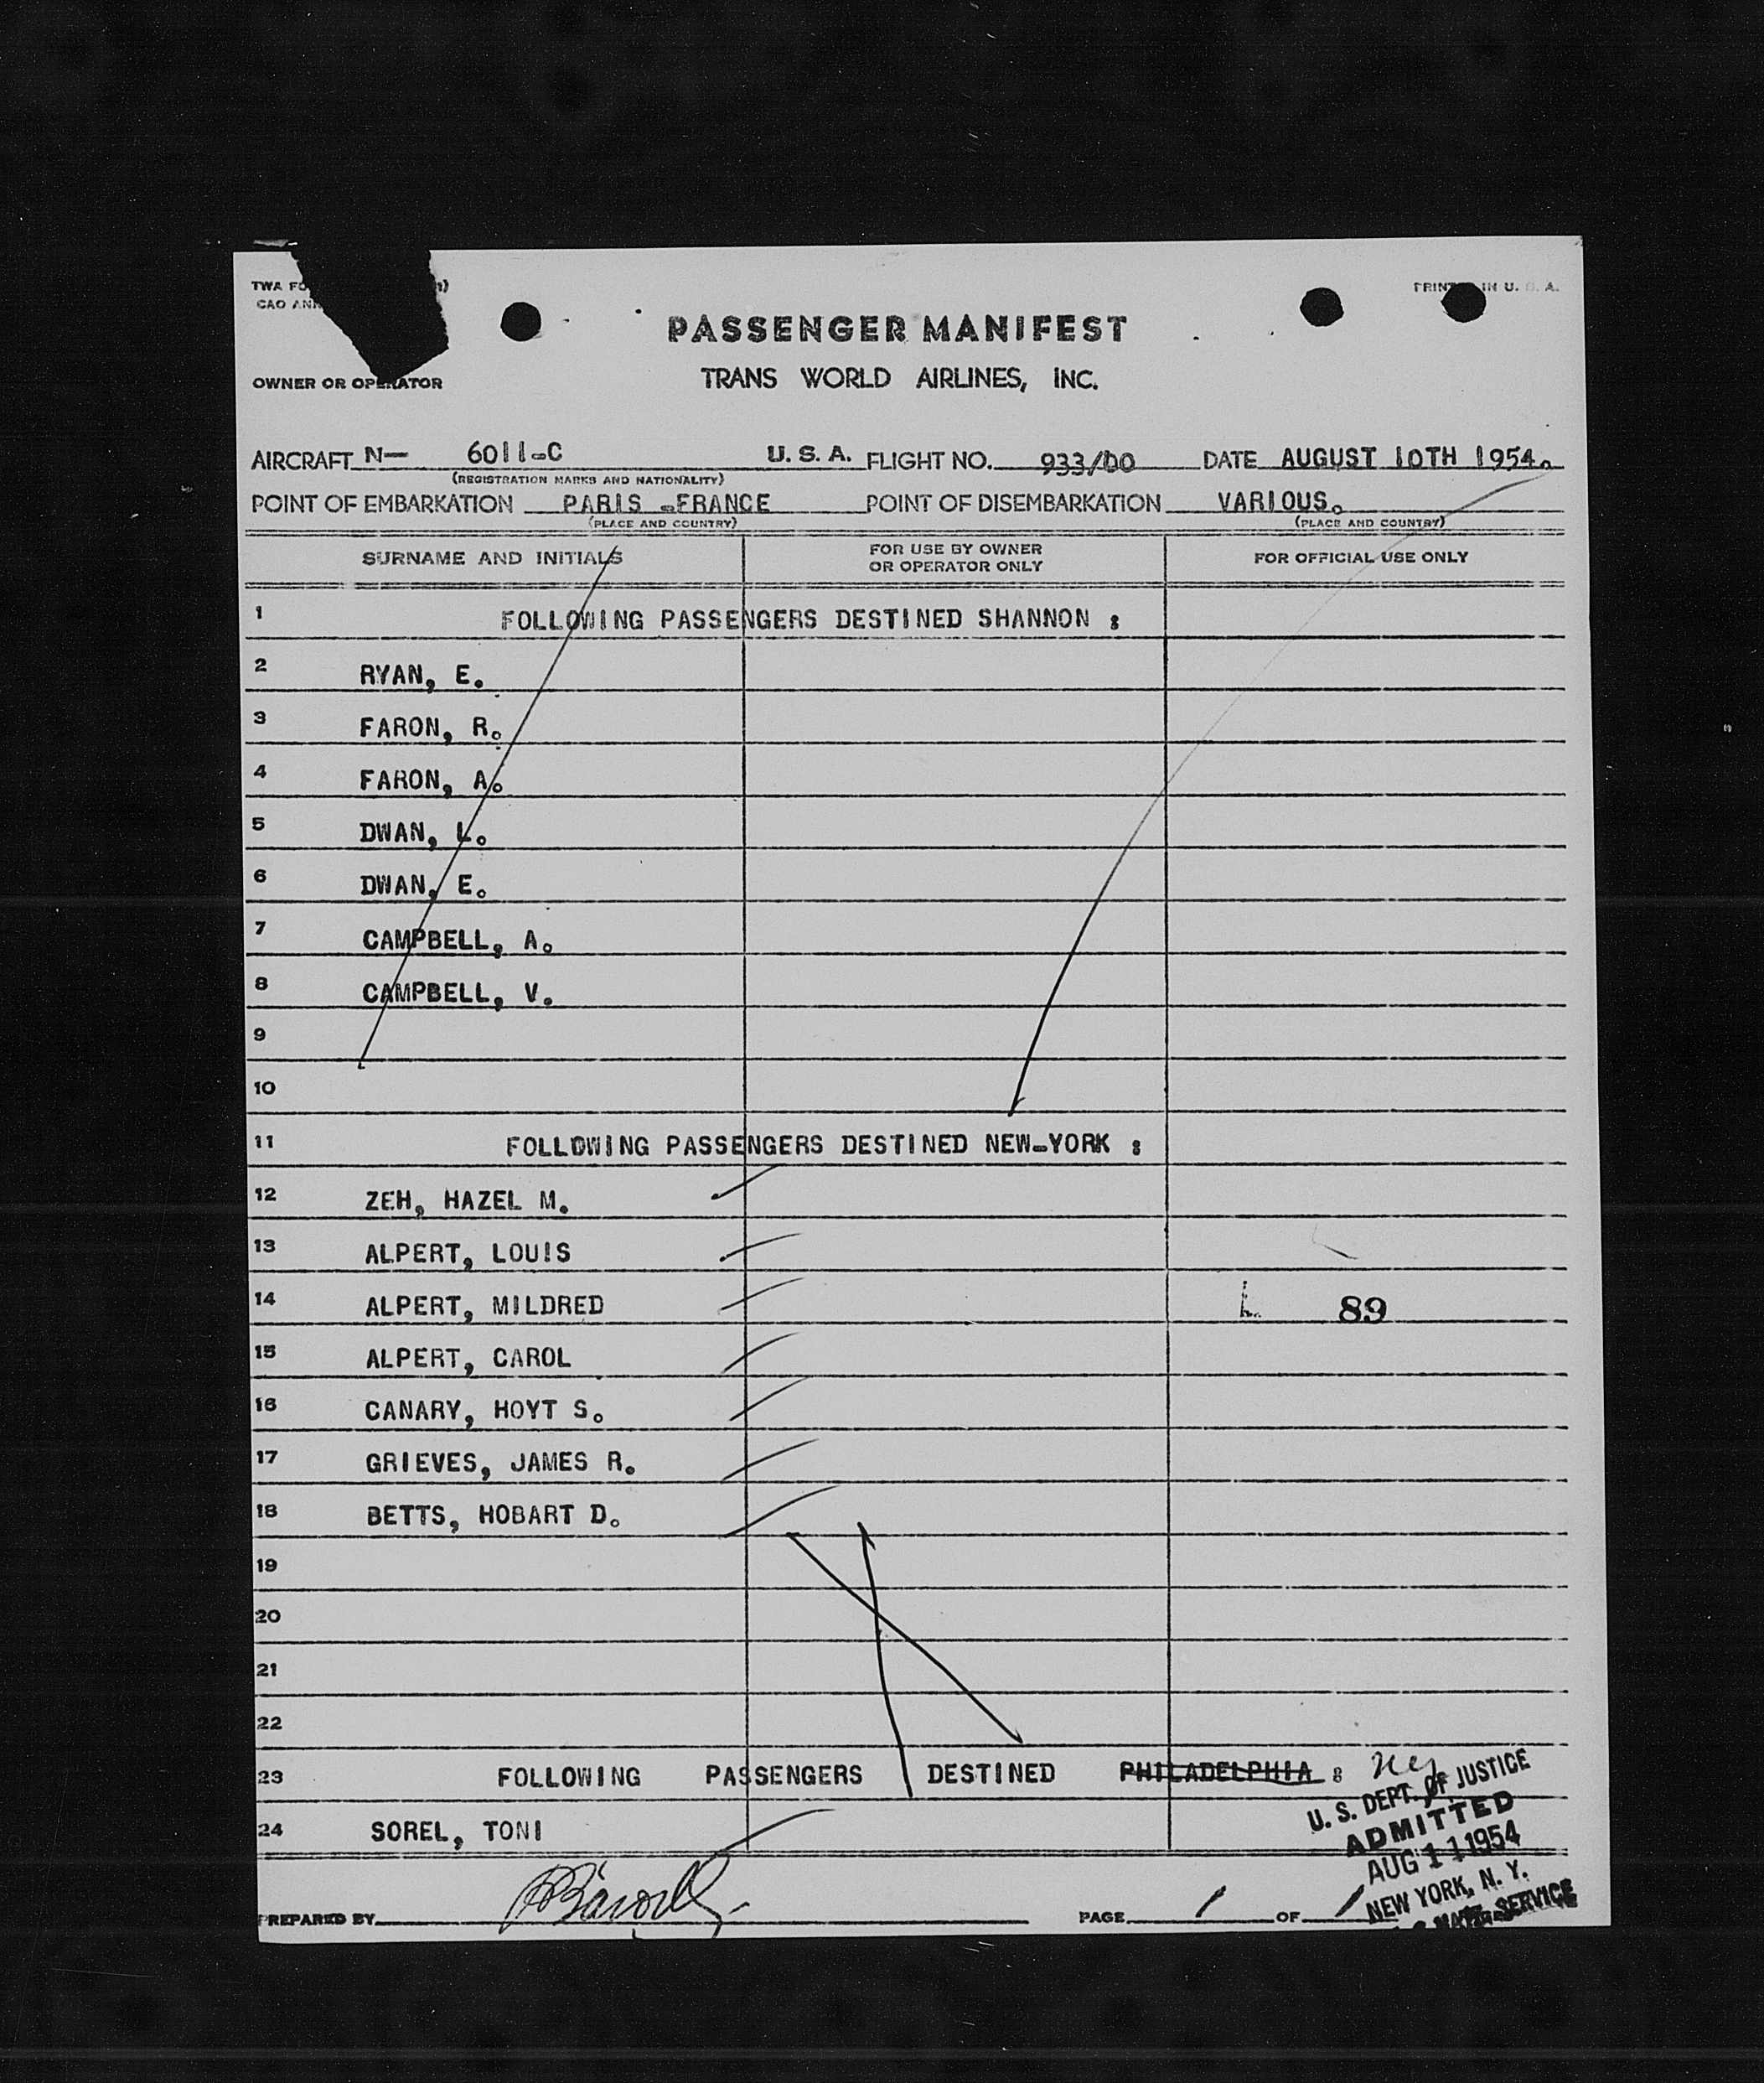 TWA FO
CAO ANN
PRINTED IN U. S. A.
PASSENGER MANIFEST
OWNER OR OPERATOR
TRANS WORLD AIRLINES, INC.
AIRCRAFT N— 6011-C U.S.A. FLIGHT NO. 933/00 DATE AUGUST 10TH 1954.
(REGISTRATION MARKS AND NATIONALITY)
POINT OF EMBARKATION PARIS -FRANCE POINT OF DISEMBARKATION VARIOUS.
(PLACE AND COUNTRY) (PLACE AND COUNTRY)
SURNAME AND INITIALS FOR USE BY OWNER OR OPERATOR ONLY FOR OFFICIAL USE ONLY
1 FOLLOWING PASSENGERS DESTINED SHANNON :
2 RYAN, E.
3 FARON, R.
4 FARON, A.
5 DWAN, L.
6 DWAN, E.
7 CAMPBELL, A.
8 CAMPBELL, V.
9
10
11 FOLLOWING PASSENGERS DESTINED NEW-YORK :
12 ZEH, HAZEL M.
13 ALPERT, LOUIS
14 ALPERT, MILDRED L 89
15 ALPERT, CAROL
16 CANARY, HOYT S.
17 GRIEVES, JAMES R.
18 BETTS, HOBART D.
19
20
21
22
23 FOLLOWING PASSENGERS DESTINED PHILADELPHIA :
24 SOREL, TONI
U. S. DEPT. OF JUSTICE
ADMITTED
AUG 11 1954
NEW YORK, N. Y.
SERVICE
PREPARED BY PAGE 1 OF 1